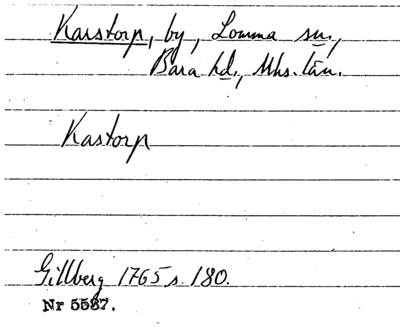 Karstorp, by, Lomma sn.,
Bara hd., Mhs. län.
Kastorp
Gillberg 1765 s. 180.
Nr 5587.